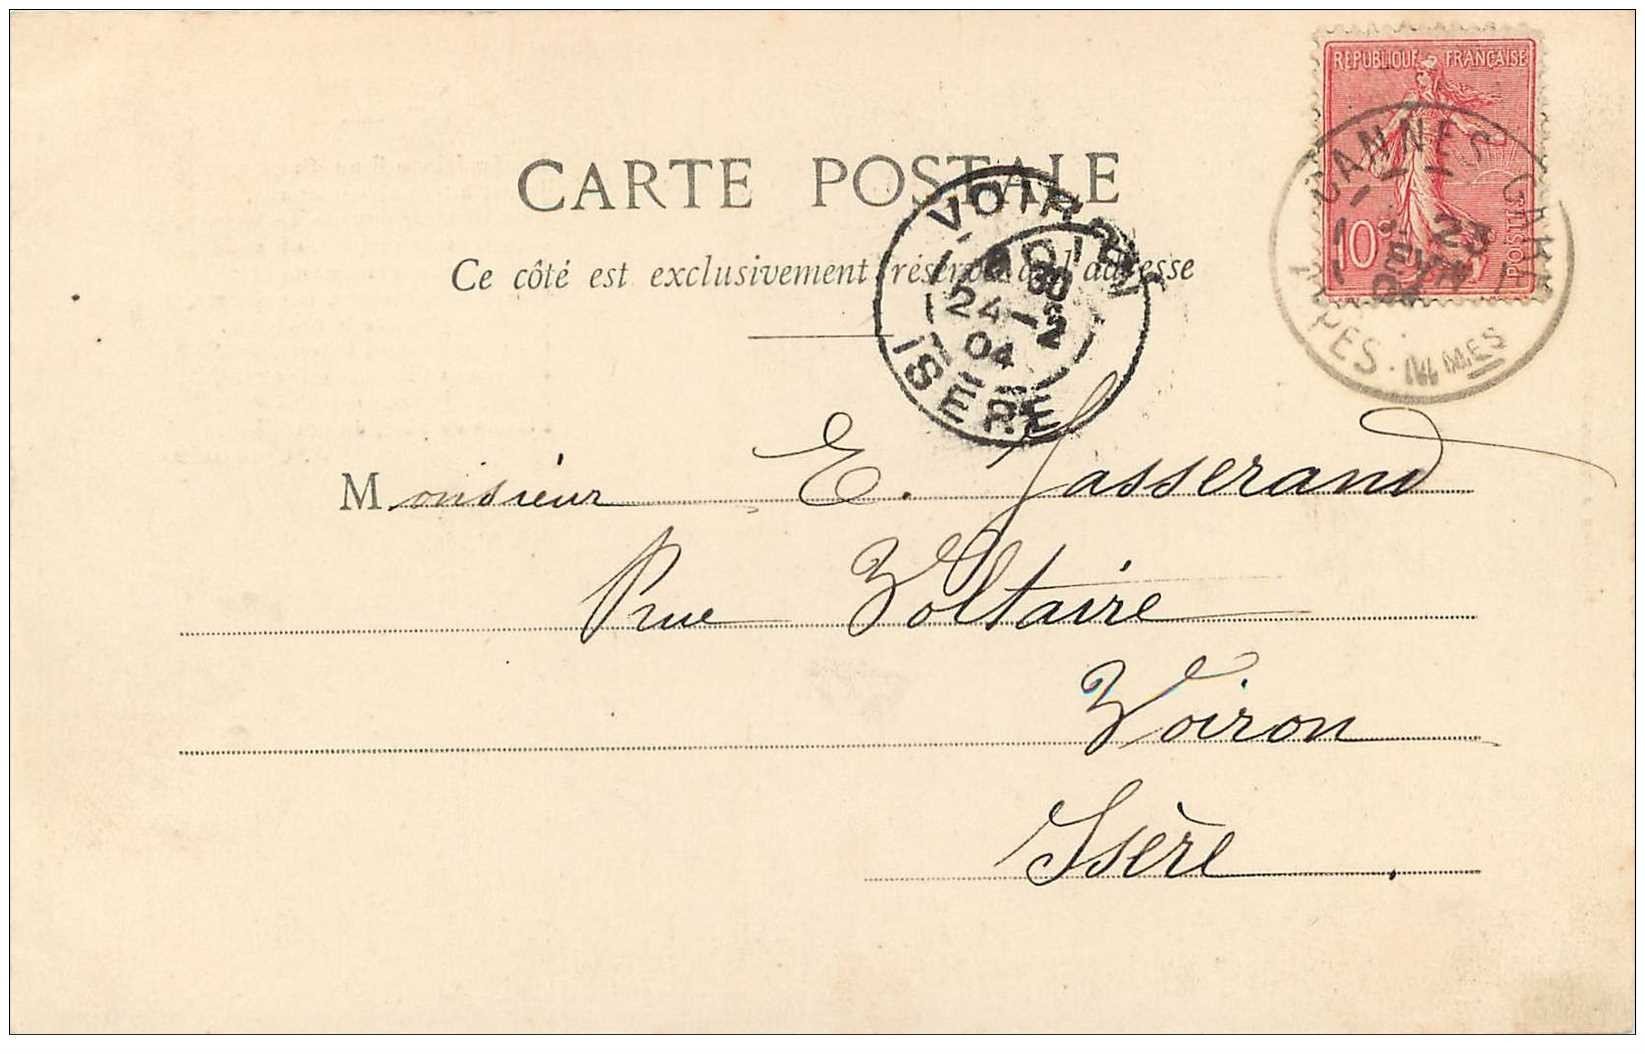 RÉPUBLIQUE FRANÇAISE
10c
POSTES
CANNES GARE
23
FEVR
04
ALPES-MMES
CARTE POSTALE
Ce côté est exclusivement réservé à l'adresse
VOIRON
30
24 - 2
04
ISÈRE
Monsieur E. Jasserand
Rue Voltaire
Voiron
Isère.